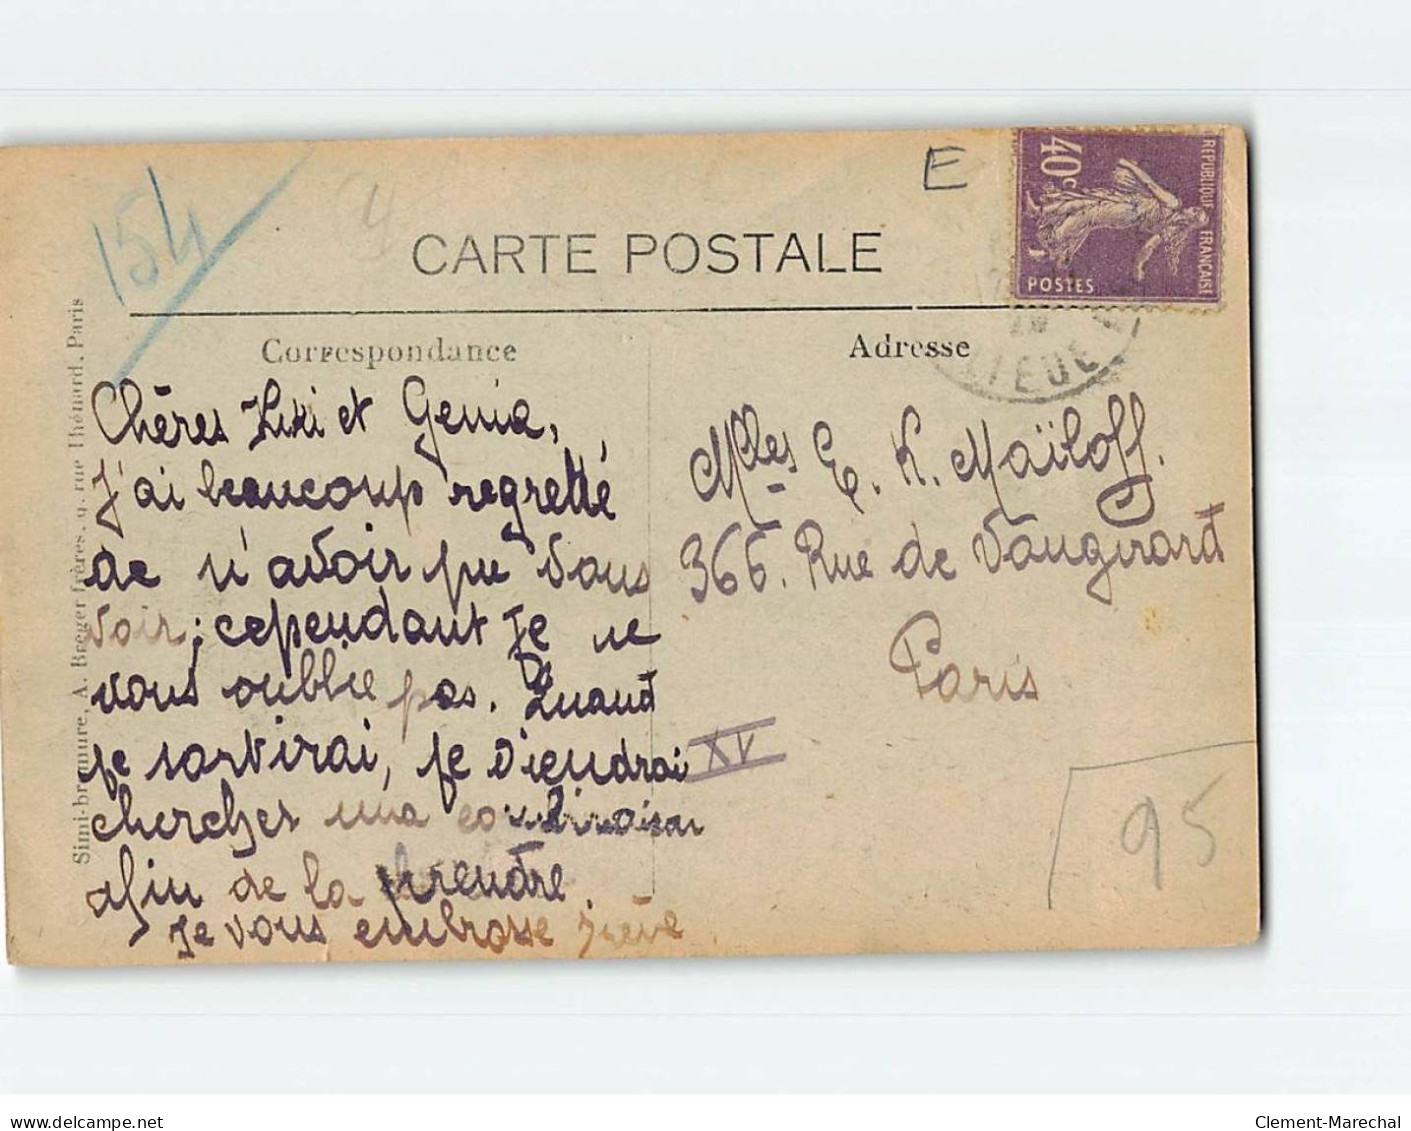 154
E
40c
REPUBLIQUE FRANCAISE
POSTES
CARTE POSTALE
Correspondance
Adresse
Simi-bromure, A. Breger frères, 9, rue Thénard, Paris
Chères Kiki et Genia,
J'ai beaucoup regretté
de n'avoir pu vous
voir; cependant je ne
vous oublie pas. Quand
je sortirai, je viendrai
chercher una combinaison
afin de la prendre.
Je vous embrasse
Mlles E. K. Maïloff.
366. Rue de Vaugirard
Paris
XV
95
www.delcampe.net
Clement-Marechal